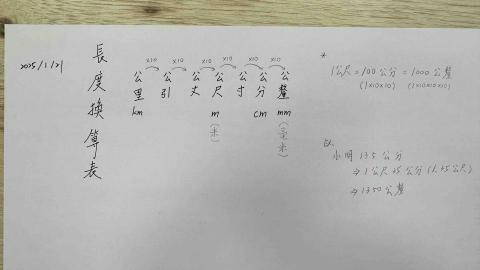 2025/1/21
長度換算表
x10 x10 x10 x10 x10 x10
公里 公引 公丈 公尺 公寸 公分 公釐
km m cm mm
(米) (毫米)
*
1公尺=100公分=1000公釐
(1x10x10) (1x10x10x10)
小明 135公分
⇒1公尺35公分(1.35公尺)
⇒1350公釐